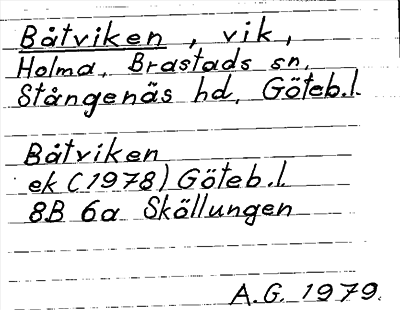 Båtviken, vik,
Holma, Brastads sn,
Stångenäs hd, Göteb.l.
Båtviken
ek (1978) Göteb.l.
8B 6a Skällungen
A.G. 1979.